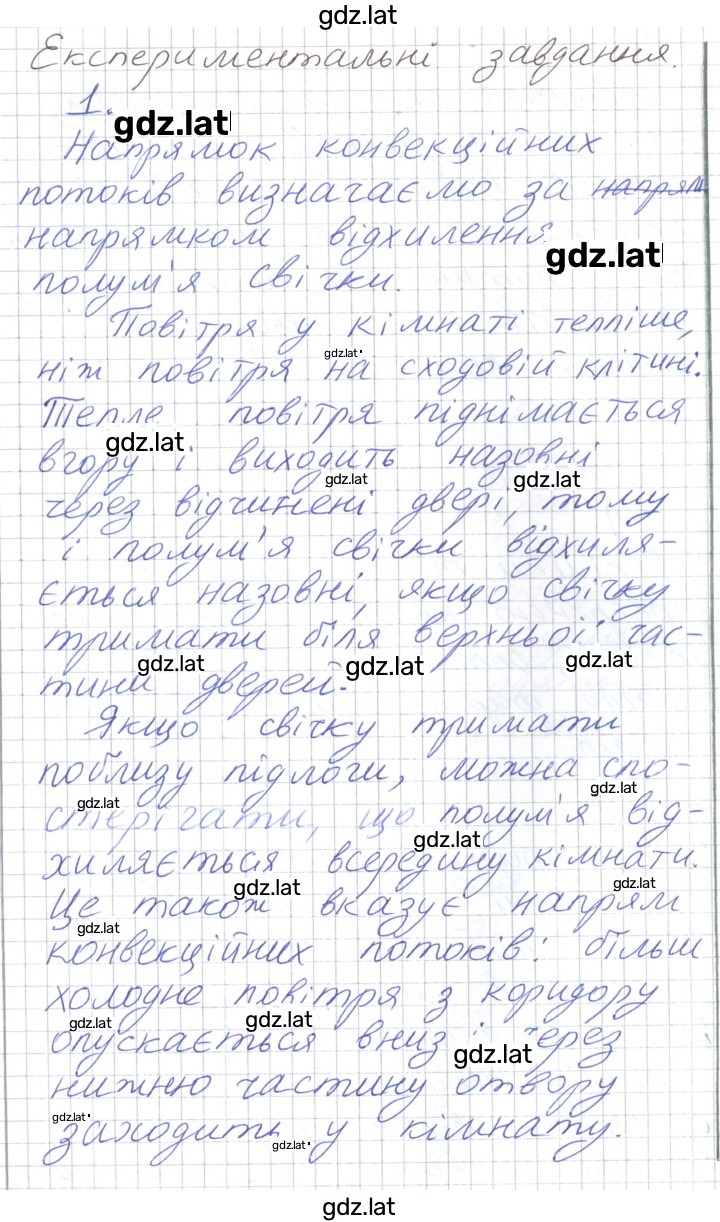 gdz.lat
Експериментальні завдання.
1.
gdz.lat
Напрямок конвекційних
потоків визначаємо за напрям
напрямком відхилення
gdz.lat
полум'я свічки.
Повітря у кімнаті тепліше,
gdz.lat
ніж повітря на сходовій клітині.
Тепле повітря піднімається
gdz.lat
вгору і виходить назовні
gdz.lat gdz.lat
через відчинені двері, тому
і полум'я свічки відхиля-
ється назовні, якщо свічку
тримати біля верхньої час-
gdz.lat gdz.lat gdz.lat
тини дверей.
Якщо свічку тримати
поблизу підлоги, можна спо-
gdz.lat gdz.lat
стерігати, що полум'я від-
gdz.lat
хиляється всередину кімнати.
gdz.lat gdz.lat
Це також вказує напрям
gdz.lat
конвекційних потоків: більш
холодне повітря з коридору
gdz.lat gdz.lat
опускається вниз і через
gdz.lat
нижню частину отвору
gdz.lat
заходить у кімнату.
gdz.lat
gdz.lat